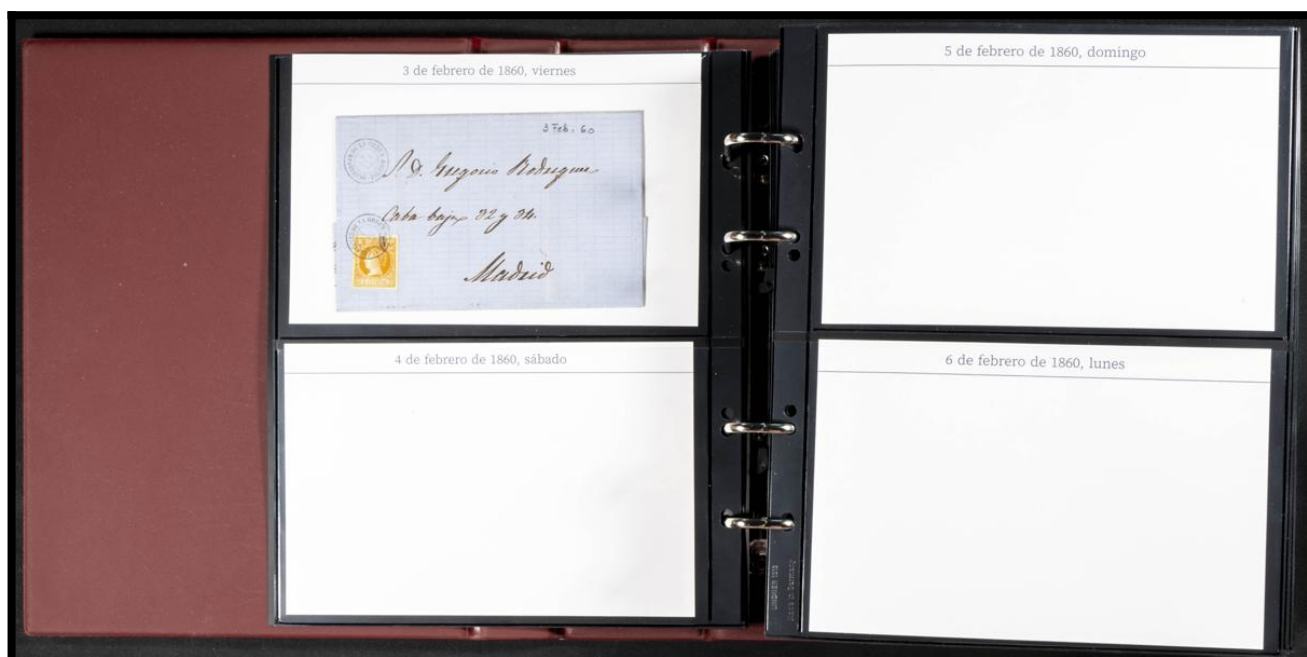 3 de febrero de 1860, viernes
3 Feb. 60
S. D. Gregorio Rodriguez
Caba baja 32 y 34.
Madrid
4 de febrero de 1860, sábado
5 de febrero de 1860, domingo
6 de febrero de 1860, lunes